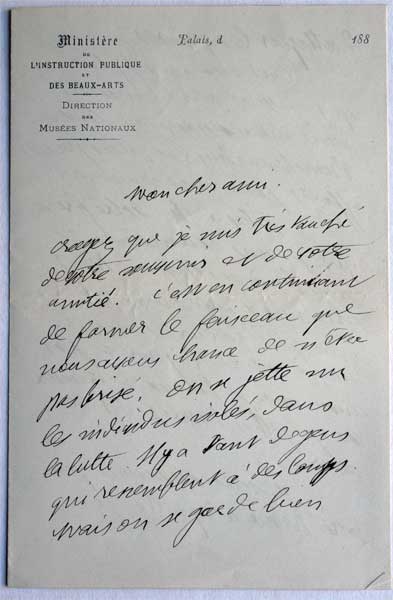 Ministère
DE
L'INSTRUCTION PUBLIQUE
ET
DES BEAUX-ARTS
DIRECTION
DES
MUSÉES NATIONAUX
Palais, d 188
Mon cher ami.
croyez que je suis très touché
de votre souvenir et de votre
amitié. C'est en continuant
de former le faisceau que
nous avons chance de n'être
pas brisé. On se jette sur
les individus isolés, dans
la lutte. Il y a tant de gens
qui ressemblent à des loups.
Mais on se garde bien